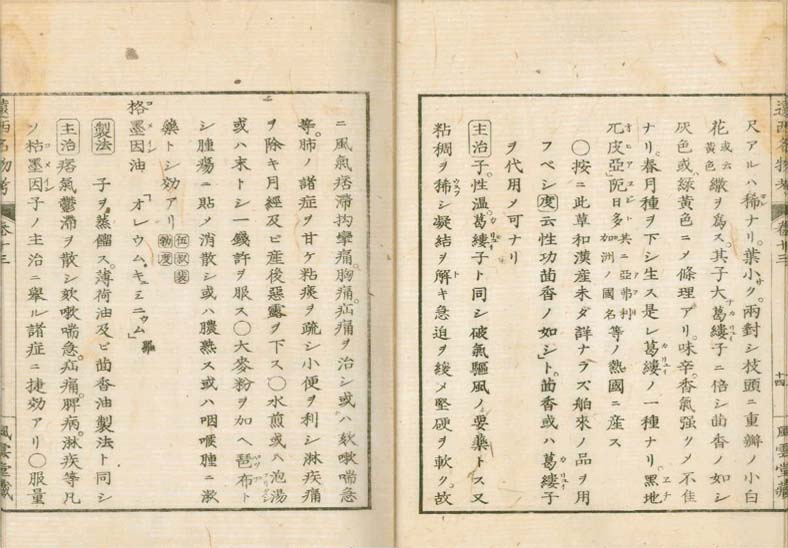 尺アルハ稀ナリ。葉小ク。兩對シ枝頭ニ重瓣ノ小白
花或云黃色繖ヲ爲ス。其子大葛縷子ニ倍シ茴香ノ如シ
灰色或ハ綠黃色ニメ條理アリ。味辛。香氣强クメ不佳
ナリ。春月種ヲ下シ生ス是レ葛縷ノ一種ナリ。黑地
兀皮亞阨日多共ニ亞弗利加洲ノ國名等ノ熱國ニ産ス
〇按ニ此草和漢産未ダ詳ナラズ舶來ノ品ヲ用
フベシ度云性功茴香ノ如シト。茴香或ハ葛縷子
ヲ代用メ可ナリ
主治子。性温葛縷子ト同シ破氣驅風ノ要藥トス又
粘稠ヲ稀シ凝結ヲ解キ急迫ヲ緩メ堅硬ヲ軟ク。故
遠西名物考
卷廿三
十四
風雲堂藏
ニ風氣痞滯拘攣痛。胸痛。疝痛ヲ治シ或ハ欬嗽喘急
等。肺ノ諸症ヲ甘ケ粘痰ヲ疏シ小便ヲ利シ淋疾痛
ヲ除キ月經及ビ産後惡露ヲ下ス〇水煎或ハ泡湯
或ハ末トシ一錢許ヲ服ス〇大麥粉ヲ加ヘ琶布ト
シ腫瘍ニ貼メ消散シ或ハ膿熟ス或ハ咽喉腫ニ漱
藥トシ効アリ
格墨因油「オレウム。キュミニウム」羅
製法 子ヲ蒸餾ス。薄荷油及ビ茴香油製法ト同シ
主治痞氣鬱滯ヲ散シ欬嗽喘急。疝痛。脾病。淋疾等凡
ソ枯墨因子ノ主治ニ擧ル諸症ニ捷効アリ〇服量
遠西名物考
卷廿三
風雲堂藏